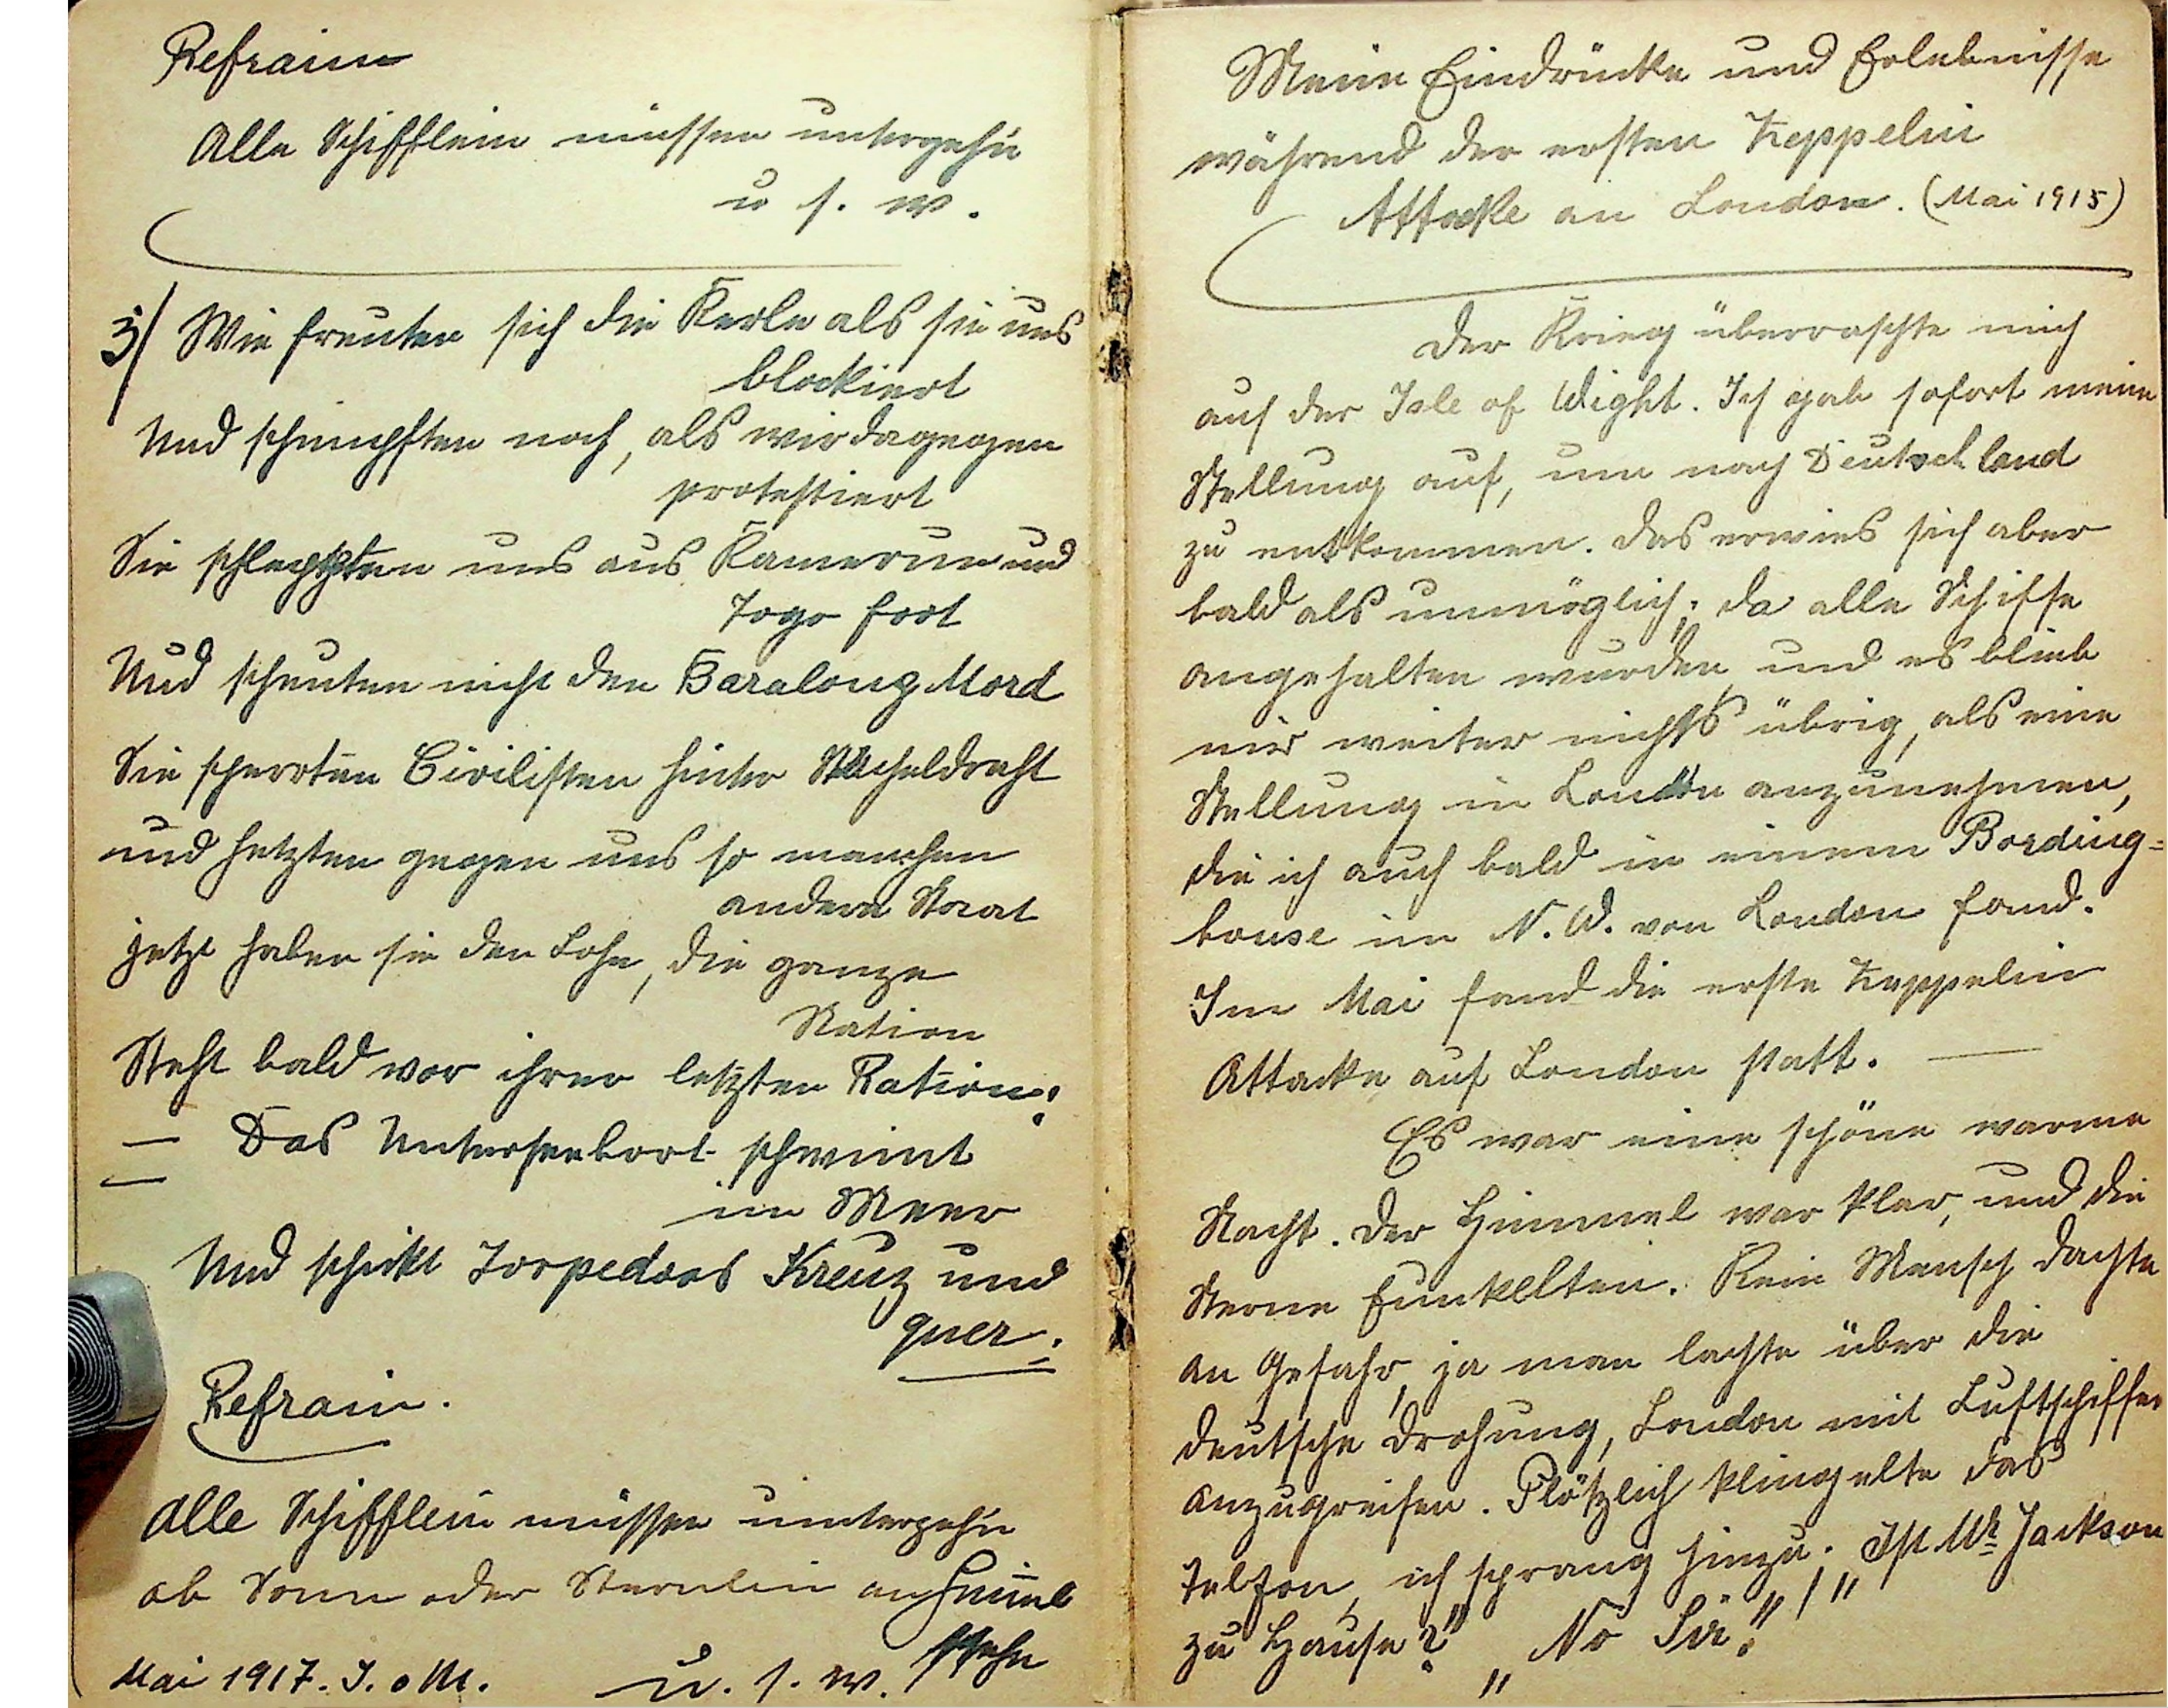 Refrain
Alle Schifflein müssen untergehn
u s. w.
3/ Wie freuten sich die Kerle als sie uns
blockiert
Und schimpften noch, als wir dagegen
protestiert
Sie schleppten uns aus Kamerun und
Togo fort
Und scheuten nicht den Baralong Mord
Sie sperrten Civilisten hinter Stacheldraht
und hetzten gegen uns so manchen
andern Staat
jetzt haben sie den Lohn, die ganze
Nation
Steht bald vor ihrer letzten Ration:
— Das Unterseeboot schwimt
im Meer
Und schickt Torpedoos Kreuz und
quer.
Refrain.
Alle Schifflein müssen untergehn
ob Sonn oder Sternlein am Himel
stehn
Mai 1917. I. o M. u. s. w.
Meine Eindrücke und Erlebnisse
während der ersten Zeppelin
Attacke an London. (Mai 1915)
Der Krieg überraschte mich
auf der Isle of Wight. Ich gab sofort meine
Stellung auf, um nach Deutschland
zu entkommen. Das erwies sich aber
bald als unmöglich; da alle Schiffe
angehalten wurden und es blieb
mir weiter nichts übrig, als eine
Stellung in London anzunehmen,
die ich auch bald in einem Bording-
house im N. W. von London fand.
Im Mai fand die erste Zeppelin
Attacke auf London statt. —
Es war eine schöne warme
Nacht. Der Himmel war klar, und die
Sterne funkelten. Kein Mensch dachte
an Gefahr, ja man lachte über die
deutsche Drohung, London mit Luftschiffen
anzugreifen. Plötzlich klingelte das
Telefon, ich sprang hinzu. „Ist Mr Jackson
zu Hause?" „No Sir."!"